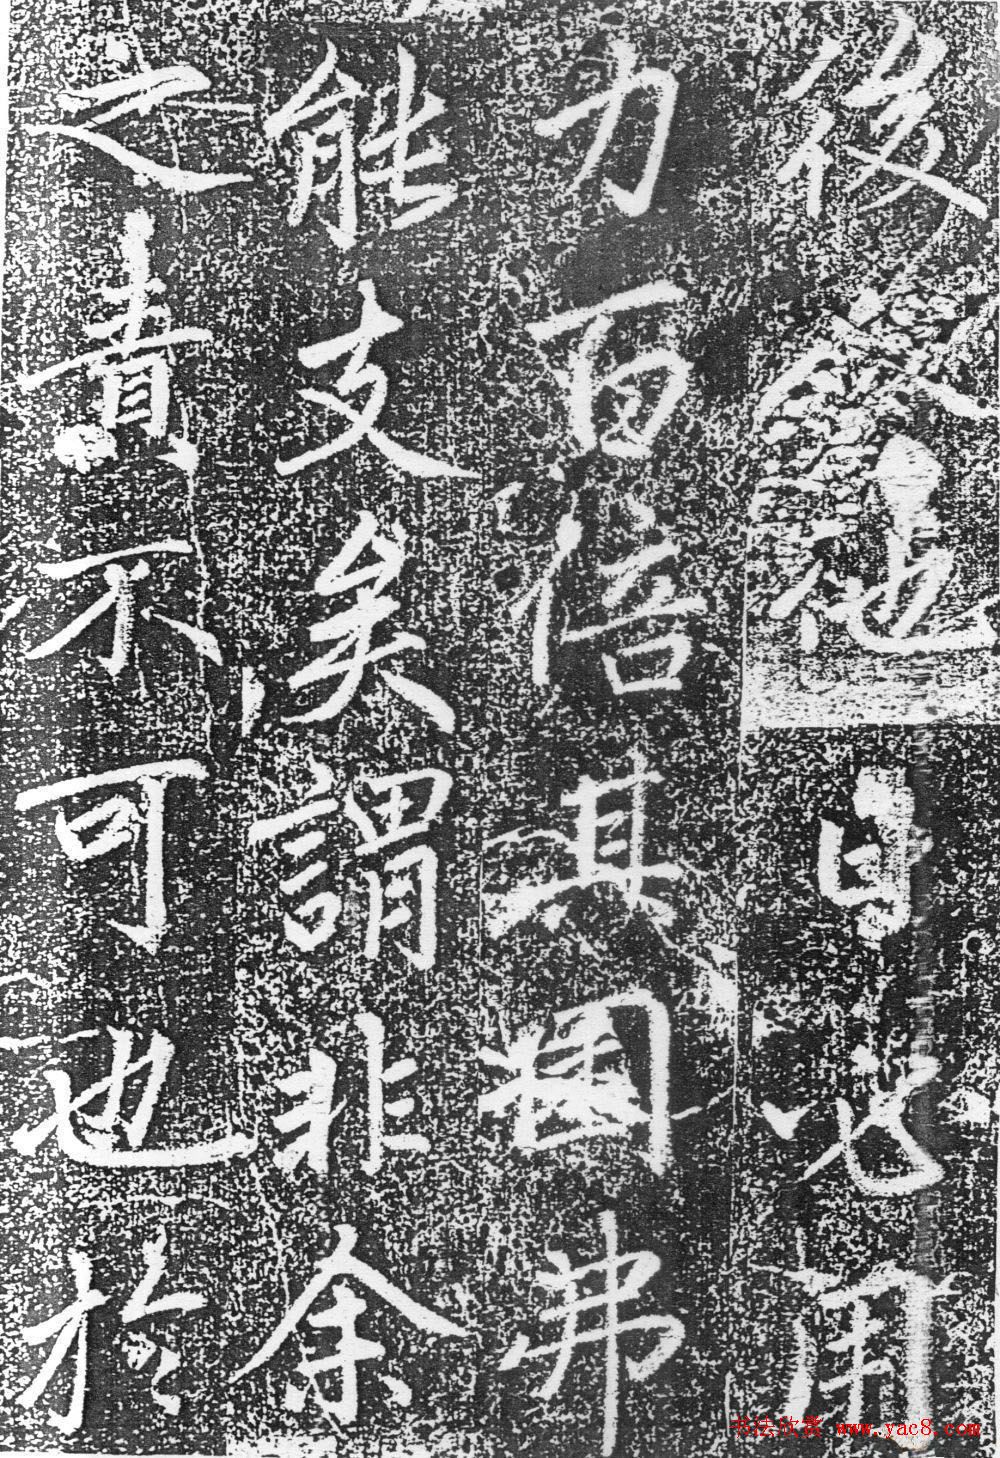 後他日必用
力百倍其困弗
能支矣謂非余
之責不可也於
书法欣赏 www.yac8.com